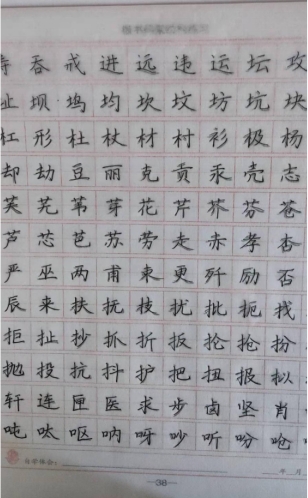 吞 戒 进 远 违 运 坛
址 坝 坞 均 坎 坟 坊 坑 块
杠 形 杜 杖 材 村 衫 极 杨
却 劫 豆 丽 克 贡 汞 壳 志
芙 芜 苇 芽 花 芹 芥 芬 苍
芦 芯 芭 苏 劳 走 赤 孝 杏
严 巫 两 甫 束 更 歼 励 否
辰 来 扶 抚 技 扰 批 扼 找
拒 扯 抄 抓 折 扳 抡 抢 扮
抛 投 抗 抖 护 把 扭 报 拟
轩 连 匣 医 求 步 卤 坚 肖
吨 呔 呕 呐 呀 吵 听 吩 呛
年 月
—38—